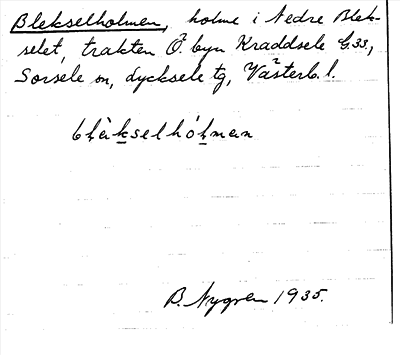 Blekselholmen, holme i Nedre Blek-
selet, trakten Ö byn Kraddsele G.33,
Sorsele sn, Lycksele tg, Västerb. l.
blàkselhólman
B. Nygren 1935.